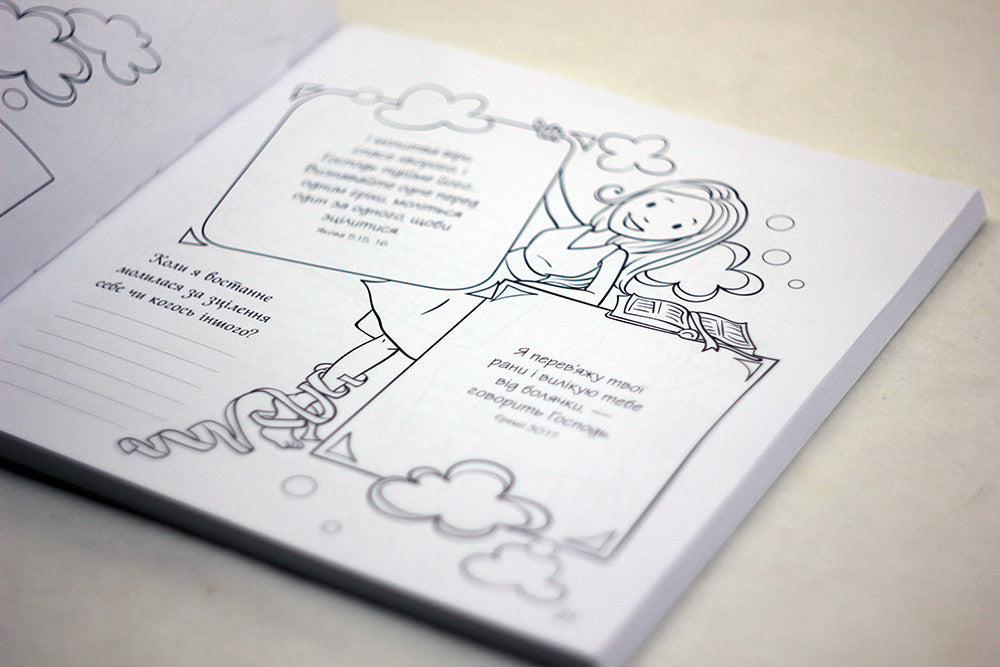 І молитва віри
спасе хворого, і
Господь підійме його.
Визнавайте один перед
одним гріхи, моліться
один за одного, щоби
зцілитися.
Якова 5:15, 16
Коли я востаннє
молилася за зцілення
себе чи когось іншого?
Я перев'яжу твої
рани і вилікую тебе
від болячки, —
говорить Господь.
Єремії 30:17